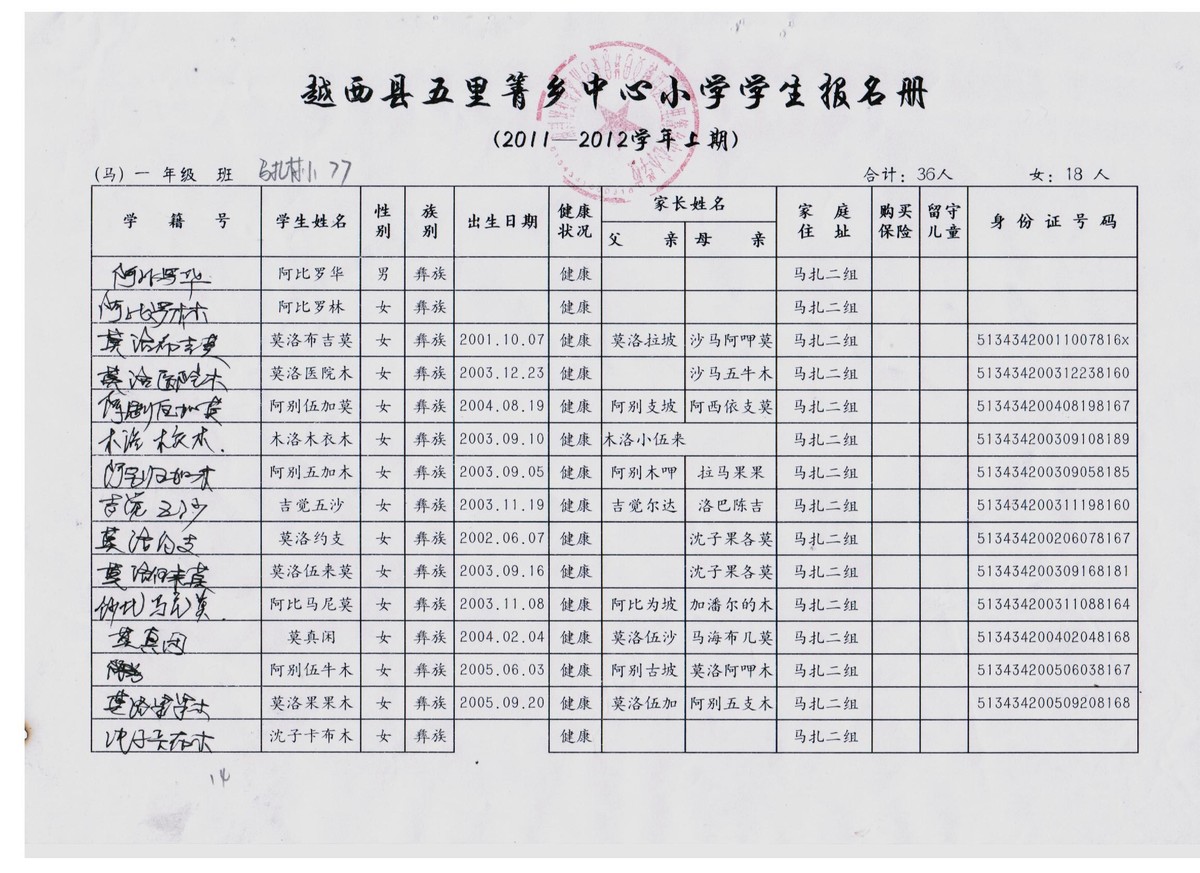 越西县五里箐乡中心小学学生报名册
(2011—2012学年上期)
(马) 一 年级 班 马扎村小 合计: 36人 女: 18 人
学 籍 号 学生姓名 性别 族别 出生日期 健康状况 家长姓名 父 亲 母 亲 家 庭 住 址 购买保险 留守儿童 身 份 证 号 码
阿比罗华 阿比罗华 男 彝族 健康 马扎二组
阿比罗林 阿比罗林 女 彝族 健康 马扎二组
莫洛布吉莫 莫洛布吉莫 女 彝族 2001.10.07 健康 莫洛拉坡 沙马阿呷莫 马扎二组 51343420011007816x
莫洛医院木 莫洛医院木 女 彝族 2003.12.23 健康 沙马五牛木 马扎二组 513434200312238160
阿别伍加莫 女 彝族 2004.08.19 健康 阿别支坡 阿西依支莫 马扎二组 513434200408198167
木洛木衣木. 木洛木衣木 女 彝族 2003.09.10 健康 木洛小伍来 马扎二组 513434200309108189
阿别五加木 阿别五加木 女 彝族 2003.09.05 健康 阿别木呷 拉马果果 马扎二组 513434200309058185
吉觉五沙 吉觉五沙 女 彝族 2003.11.19 健康 吉觉尔达 洛巴陈吉 马扎二组 513434200311198160
莫洛约支 莫洛约支 女 彝族 2002.06.07 健康 沈子果各莫 马扎二组 513434200206078167
莫洛伍来莫 莫洛伍来莫 女 彝族 2003.09.16 健康 沈子果各莫 马扎二组 513434200309168181
阿比马尼莫 女 彝族 2003.11.08 健康 阿比为坡 加潘尔的木 马扎二组 513434200311088164
莫真闲 莫真闲 女 彝族 2004.02.04 健康 莫洛伍沙 马海布几莫 马扎二组 513434200402048168
阿别伍牛木 女 彝族 2005.06.03 健康 阿别古坡 莫洛阿呷木 马扎二组 513434200506038167
莫洛果果木 女 彝族 2005.09.20 健康 莫洛伍加 阿别五支木 马扎二组 513434200509208168
沈子卡布木 女 彝族 健康 马扎二组
14